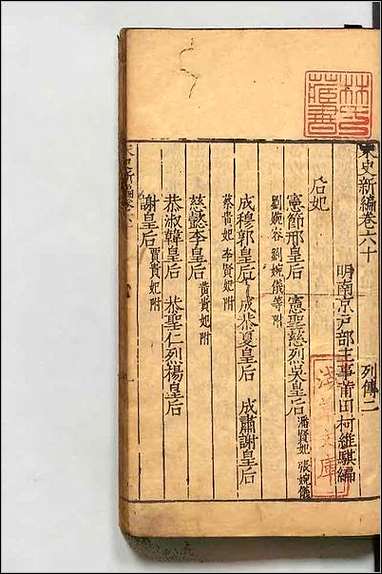 林氏藏書
宋史新編卷六十 列傳二
明南京戸部主事莆田柯維騏編
淺草文庫
后妃
憲節邢皇后 憲聖慈烈吳皇后 潘賢妃 張婉儀
劉婉容 劉婉儀等附
成穆郭皇后 成恭夏皇后 成肅謝皇后
蔡貴妃 李賢妃附
慈懿李皇后 黃貴妃附
恭淑韓皇后 恭聖仁烈楊皇后
謝皇后 賈貴妃附
宋史新編卷六